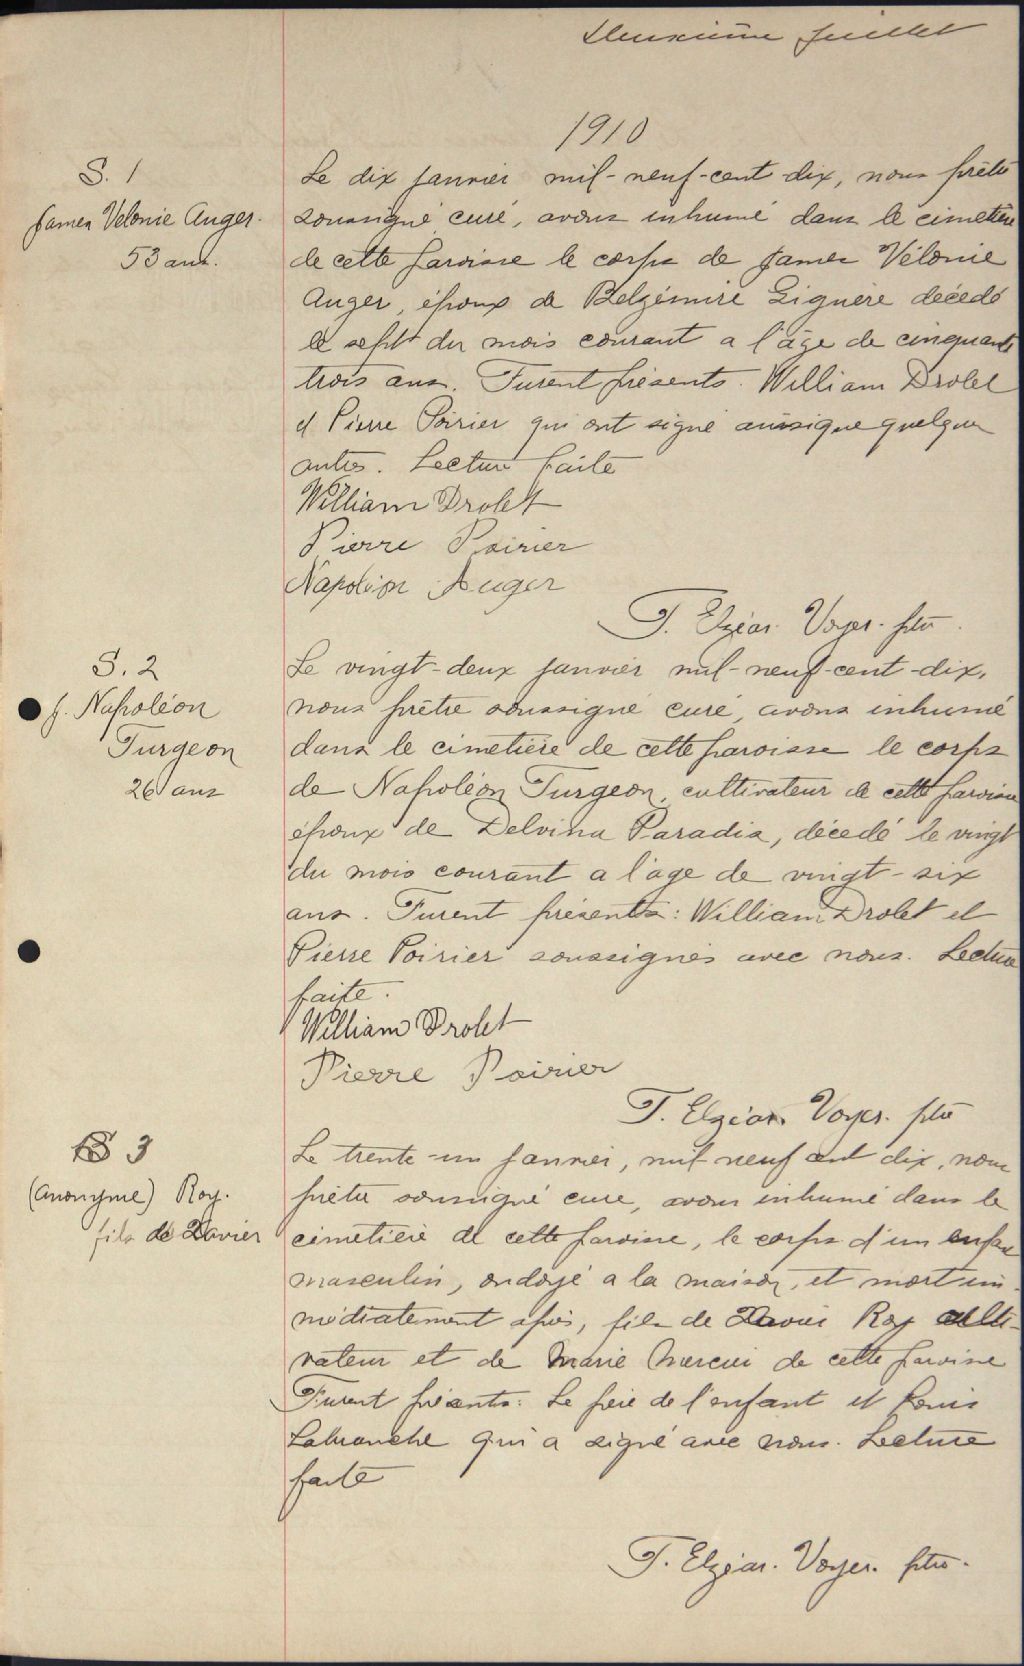 Deuxième feuillet
1910
S. 1
James Vélonie Auger.
53 ans.
Le dix janvier mil-neuf-cent-dix, nous prêtre
soussigné curé, avons inhumé dans le cimetière
de cette paroisse le corps de James Vélonie
Auger, époux de Belzémire Giguère décédé
le sept du mois courant a l'âge de cinquante
trois ans. Furent présents. William Drolet
et Pierre Poirier qui ont signé ainsique quelques
autres. Lecture faite
William Drolet
Pierre Poirier
Napoléon Auger
T. Elzéar Voyer. ptre.
S. 2
J. Napoléon
Turgeon
26 ans
Le vingt-deux janvier mil-neuf-cent-dix,
nous prêtre soussigné curé, avons inhumé
dans le cimetière de cette paroisse le corps
de Napoléon Turgeon, cultivateur de cette paroisse
époux de Delvina Paradis, décédé le vingt
du mois courant a l'age de vingt-six
ans. Furent présents: William Drolet et
Pierre Poirier soussignés avec nous. Lecture
faite.
William Drolet
Pierre Poirier
T. Elzéar. Voyer. ptre
S 3
(Anonyme) Roy.
fils de Xavier
Le trente-un janvier, mil neuf cent dix, nous
prêtre soussigné curé, avons inhumé dans le
cimetière de cette paroisse, le corps d'un enfant
masculin, ondoyé a la maison, et mort im-
médiatement après, fils de Xavier Roy culti-
vateur et de Marie Mercier de cette paroisse
Furent présents: Le père de l'enfant et Louis
Labranche qui a signé avec nous. Lecture
faite
T. Elzéar. Voyer. ptre.